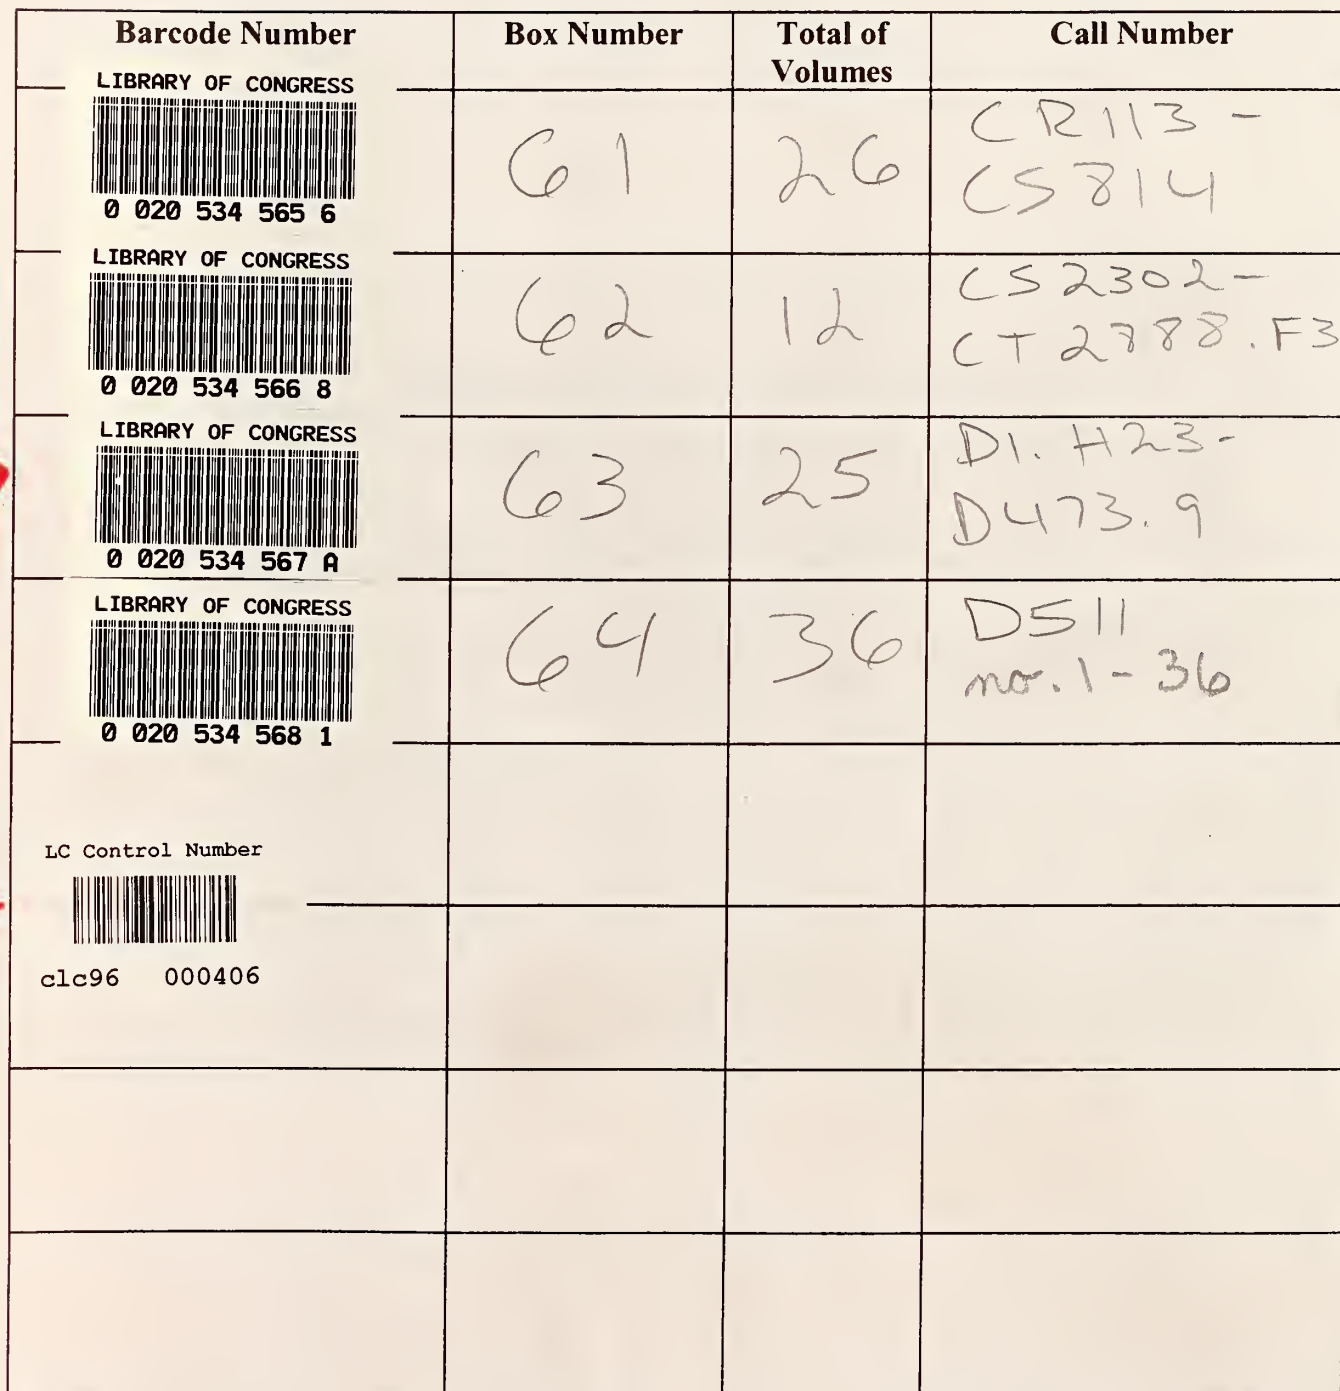 Barcode Number Box Number Total of Call Number
Volumes
LIBRARY OF CONGRESS
0 020 534 565 6
61 26 CR113 -
CS814
LIBRARY OF CONGRESS
0 020 534 566 8
62 12 CS2302-
CT2788.F3
LIBRARY OF CONGRESS
0 020 534 567 A
63 25 D1.H23-
D473.9
LIBRARY OF CONGRESS
0 020 534 568 1
64 36 D511
no.1-36
LC Control Number
clc96 000406